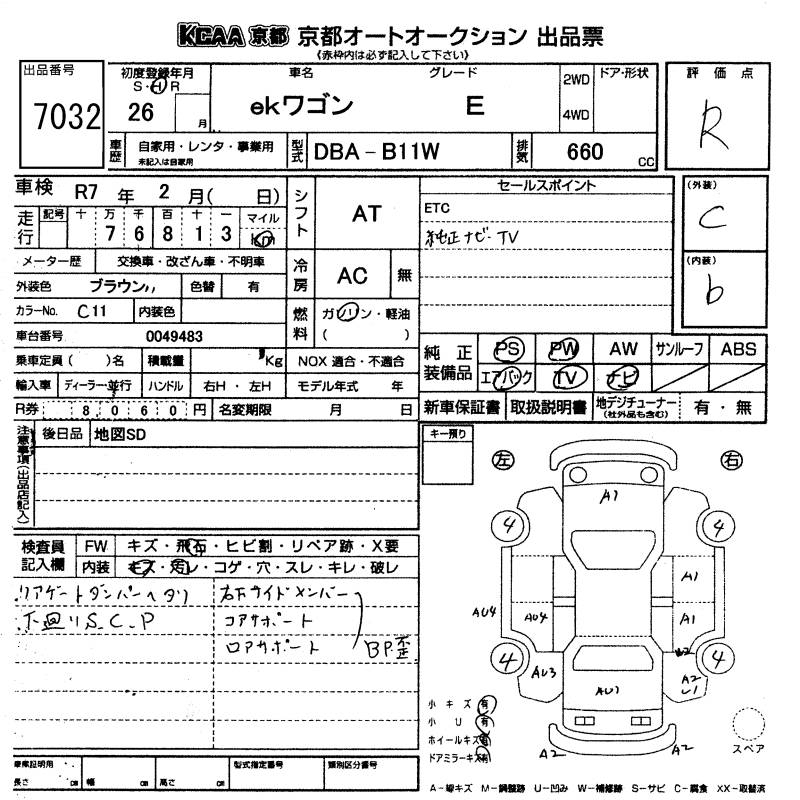 KCAA 京都 京都オートオークション 出品票
《赤枠内は必ず記入して下さい》
出品番号
7032
初度登録年月
S・H・R
26
月
車名
グレード
ekワゴン E
2WD
4WD
ドア・形状
評価点
R
車歴
自家用・レンタ・事業用
未記入は自家用
型式
DBA－B11W
排気
660 CC
車検 R7 年 2 月( 日)
走行
記号 十 万 千 百 十 一 マイル
7 6 8 1 3 km
メーター歴 交換車・改ざん車・不明車
外装色 ブラウン 色替 有
カラーNo. C11 内装色
車台番号 0049483
乗車定員( )名 積載量 Kg NOX 適合・不適合
輸入車 ディーラー・並行 ハンドル 右H・左H モデル年式 年
R券 8060円 名変期限 月 日
シフト AT
冷房 AC 無
燃料 ガソリン・軽油
( )
セールスポイント
ETC
純正ナビ・TV
(外装)
C
(内装)
b
純正装備品
PS PW AW サンルーフ ABS
エアバック TV ナビ
新車保証書 取扱説明書 地デジチューナー
(社外品も含む)
有・無
注意事項(出品店記入)
後日品 地図SD
キー預り
検査員記入欄
FW キズ・飛石・ヒビ割・リペア跡・X要
内装 キズ・汚レ・コゲ・穴・スレ・キレ・破レ
リアゲートダンパーヘタリ
下廻りS.C.P
右下サイドメンバー
コアサポート
ロアサポート
BP歪
左
右
A1
4
4
A1
AU4
AU4
A1
W2
4
4
AU3
AU1
A2
U1
小キズ 有
小U 有
ホイールキズ 有
ドアミラーキズ 有
A2
A2
スペア
車庫証明用
長さ cm 幅 cm 高さ cm
型式指定番号
類別区分番号
A－線キズ M－調整跡 U－凹み W－補修跡 S－サビ C－腐食 XX－取替済